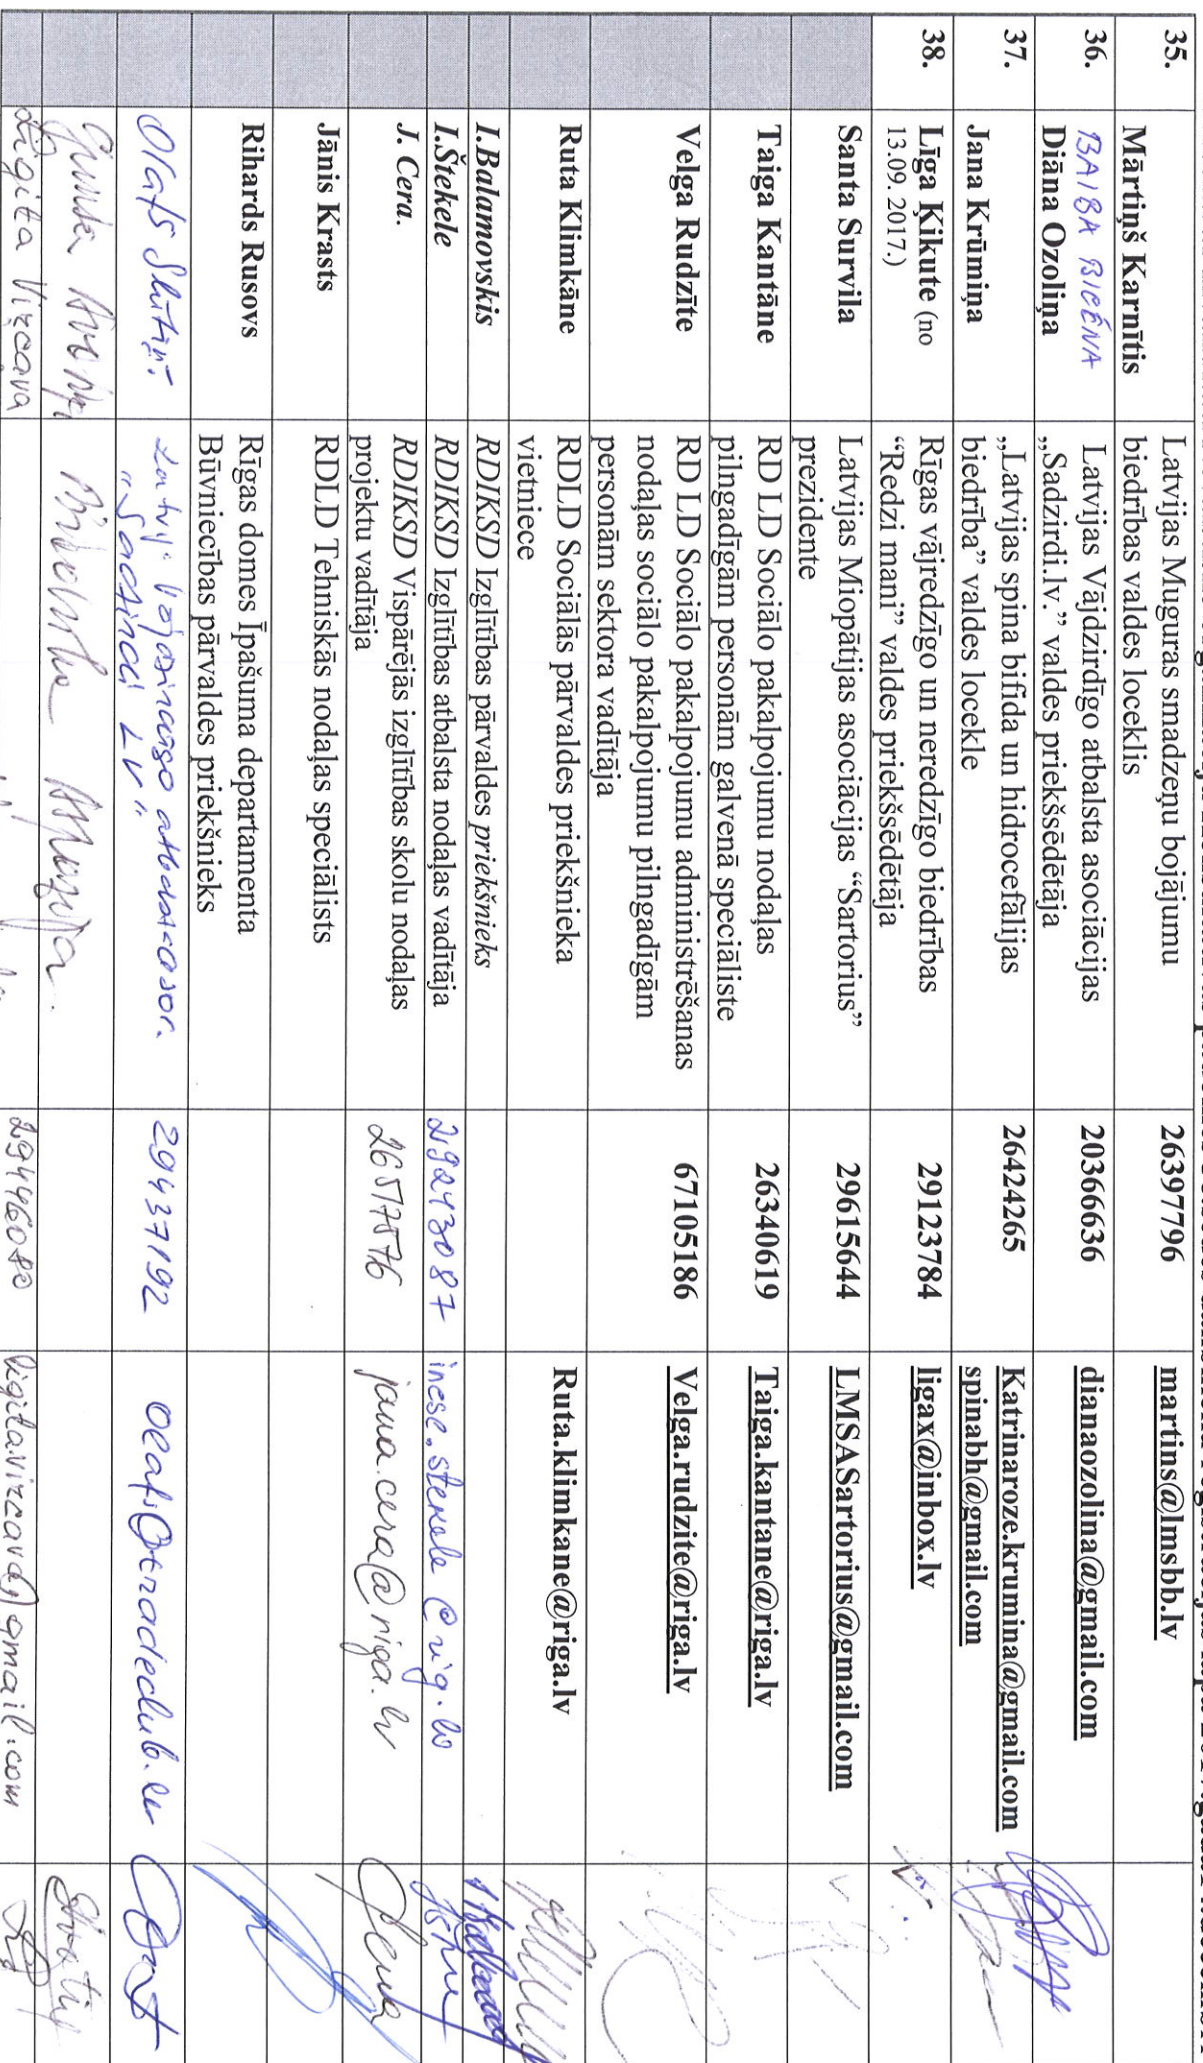 35.
Mārtiņš Karnītis
Latvijas Muguras smadzeņu bojājumu
biedrības valdes loceklis
26397796
martins@lmsbb.lv
36.
BAIBA BICĒNA
Diāna Ozoliņa
Latvijas Vājdzirdīgo atbalsta asociācijas
„Sadzirdi.lv.” valdes priekšsēdētāja
20366636
dianaozolina@gmail.com
37.
Jana Krūmiņa
„Latvijas spina bifida un hidrocefālijas
biedrība” valdes locekle
26424265
Katrinaroze.krumina@gmail.com
spinabh@gmail.com
38.
Līga Ķikute (no
13.09. 2017.)
Rīgas vājredzīgo un neredzīgo biedrības
“Redzi mani” valdes priekšsēdētāja
29123784
ligax@inbox.lv
Santa Survila
Latvijas Miopātijas asociācijas “Sartorius”
prezidente
29615644
LMSASartorius@gmail.com
Taiga Kantāne
RD LD Sociālo pakalpojumu nodaļas
pilngadīgām personām galvenā speciāliste
26340619
Taiga.kantane@riga.lv
Velga Rudzīte
RD LD Sociālo pakalpojumu administrēšanas
nodaļas sociālo pakalpojumu pilngadīgām
personām sektora vadītāja
67105186
Velga.rudzite@riga.lv
Ruta Klimkāne
RDLD Sociālās pārvaldes priekšnieka
vietniece
Ruta.klimkane@riga.lv
I.Balamovskis
RDIKSD Izglītības pārvaldes priekšnieks
I.Štekele
RDIKSD Izglītības atbalsta nodaļas vadītāja
29243087
inese.stekele@rig.lv
J. Cera.
RDIKSD Vispārējās izglītības skolu nodaļas
projektu vadītāja
26517576
jana.cera@riga.lv
Jānis Krasts
RDLD Tehniskās nodaļas speciālists
Rihards Rusovs
Rīgas domes Īpašuma departamenta
Būvniecības pārvaldes priekšnieks
Olafs
"Sadzirdi LV"
29437192
olafs@tradeclub.lv
Gunta
Ligita Vircava
29446080
ligita.vircava@gmail.com